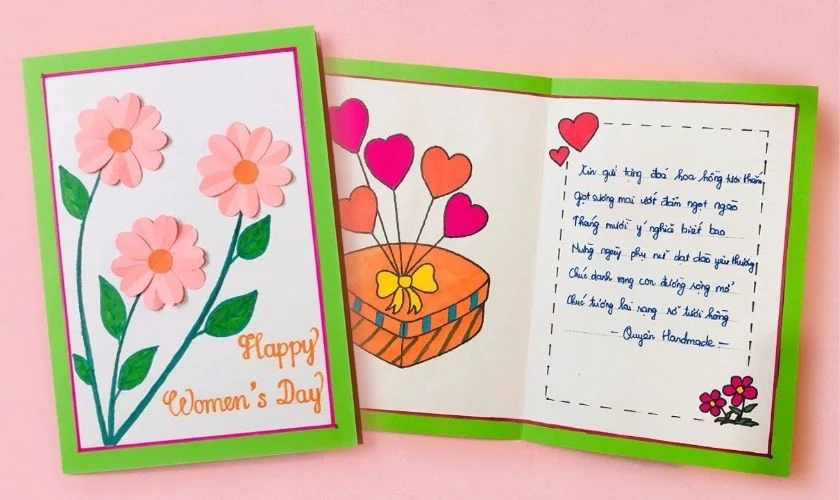 Happy
Women's Day
Xin gửi tặng đoá hoa hồng tươi thắm
Giọt sương mai ướt đẫm ngọt ngào
Tháng mười ý nghĩa biết bao
Mừng ngày phụ nữ dạt dào yêu thương
Chúc danh vang con đường rộng mở
Chúc tương lai rạng rỡ tươi hồng
- Quyên Handmade -